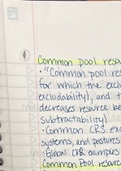 Common pool resou
• "Common pool res
for which the exclu
excludability), and t
decreases resource be
subtractability)
• Common CPRs exa
systems, and pastures
• Global CPR campus
Common Pool Resour